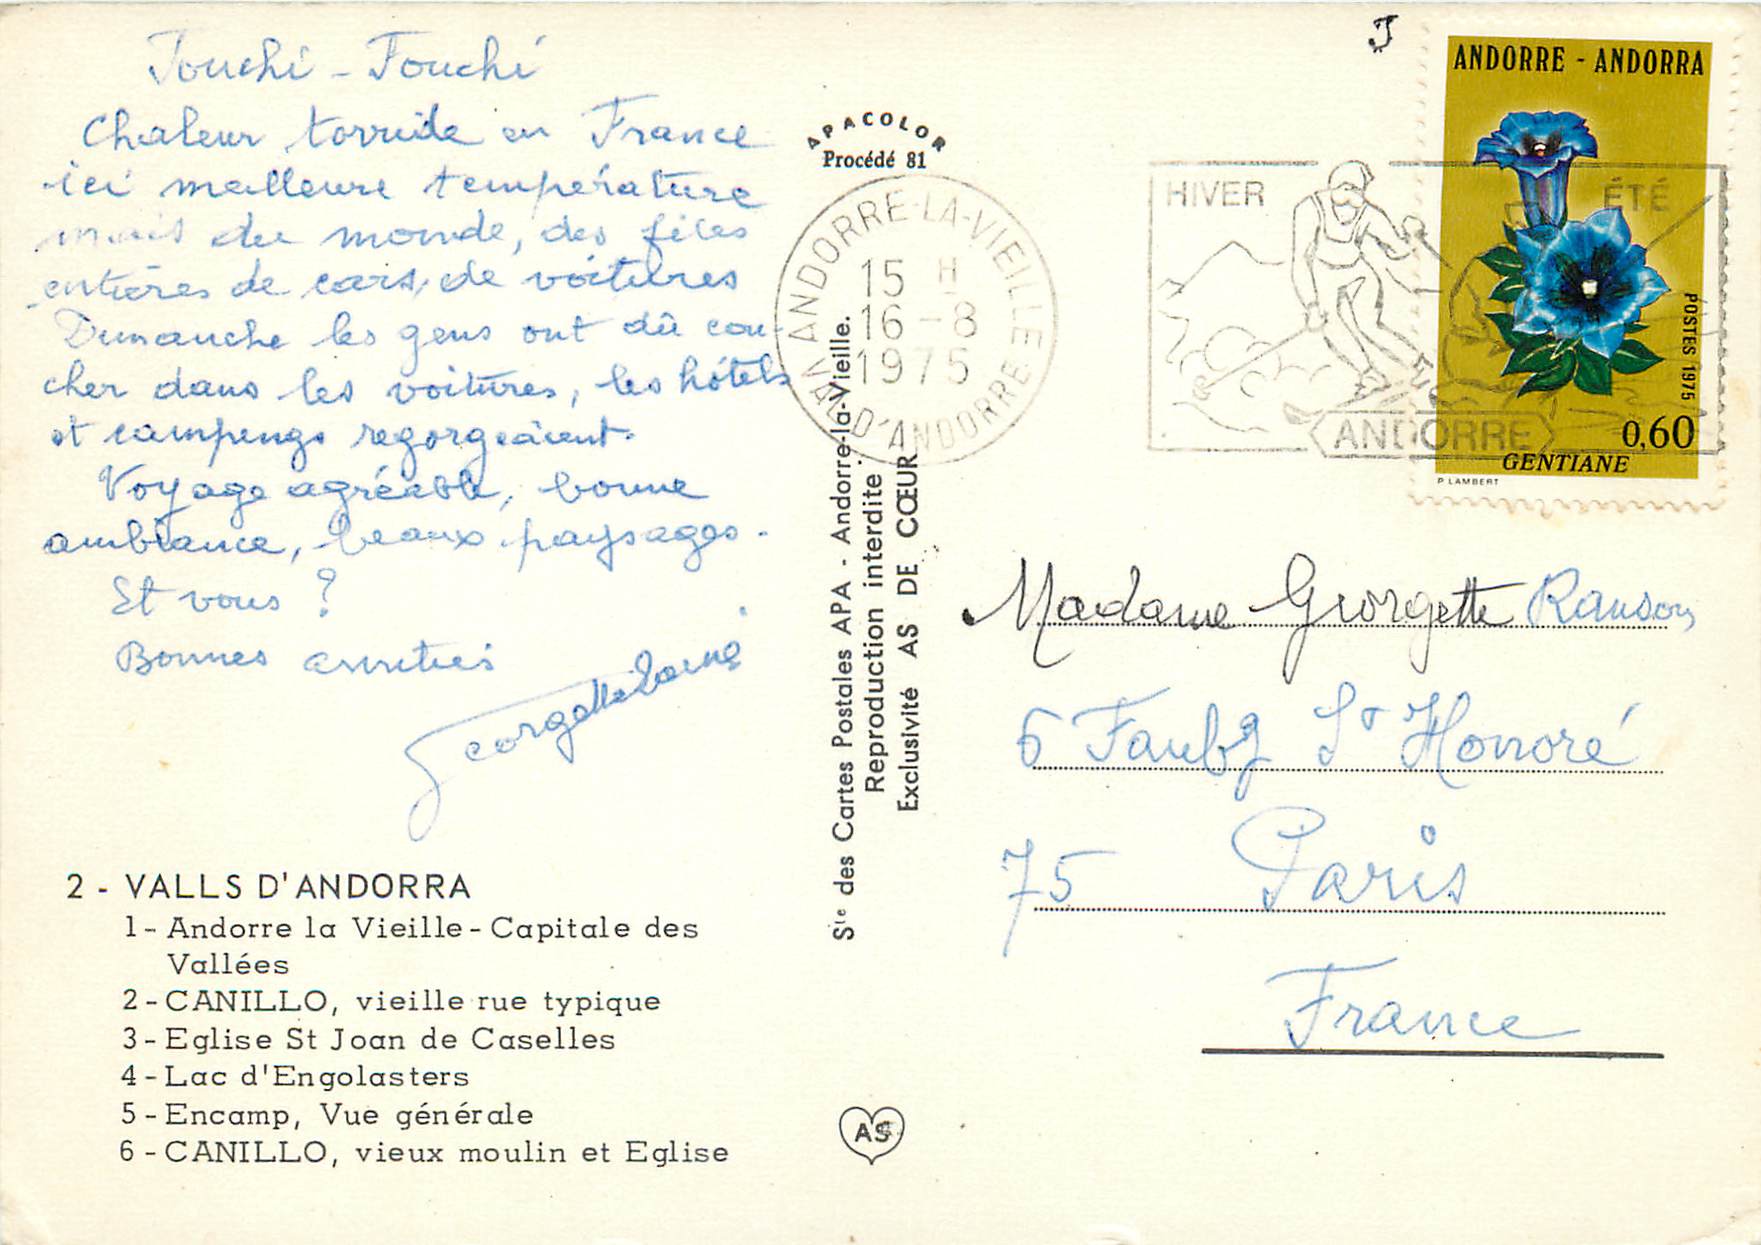 Touchi - Fouchi
Chaleur torride en France
ici meilleure température
mais du monde, des files
entières de cars, de voitures
Dimanche les gens ont dû cou-
cher dans les voitures, les hôtels
et campings regorgeaient.
Voyage agréable, bonne
ambiance, beaux paysages.
Et vous ?
Bonnes amitiés
Georgette
2 - VALLS D'ANDORRA
1- Andorre la Vieille - Capitale des
Vallées
2 - CANILLO, vieille rue typique
3 - Eglise St Joan de Caselles
4 - Lac d'Engolasters
5 - Encamp, Vue générale
6 - CANILLO, vieux moulin et Eglise
APACOLOR
Procédé 81
Sie des Cartes Postales APA - Andorre-la-Vieille.
Reproduction interdite
Exclusivité AS DE CŒUR
AS
ANDORRE-LA-VIEILLE
15 H
16 - 8
1975
VAL D'ANDORRE
HIVER
ÉTÉ
ANDORRE
J
ANDORRE - ANDORRA
POSTES 1975
0,60
GENTIANE
P LAMBERT
Madame Georgette Ranson
6 Faubg St Honoré
75 Paris
France